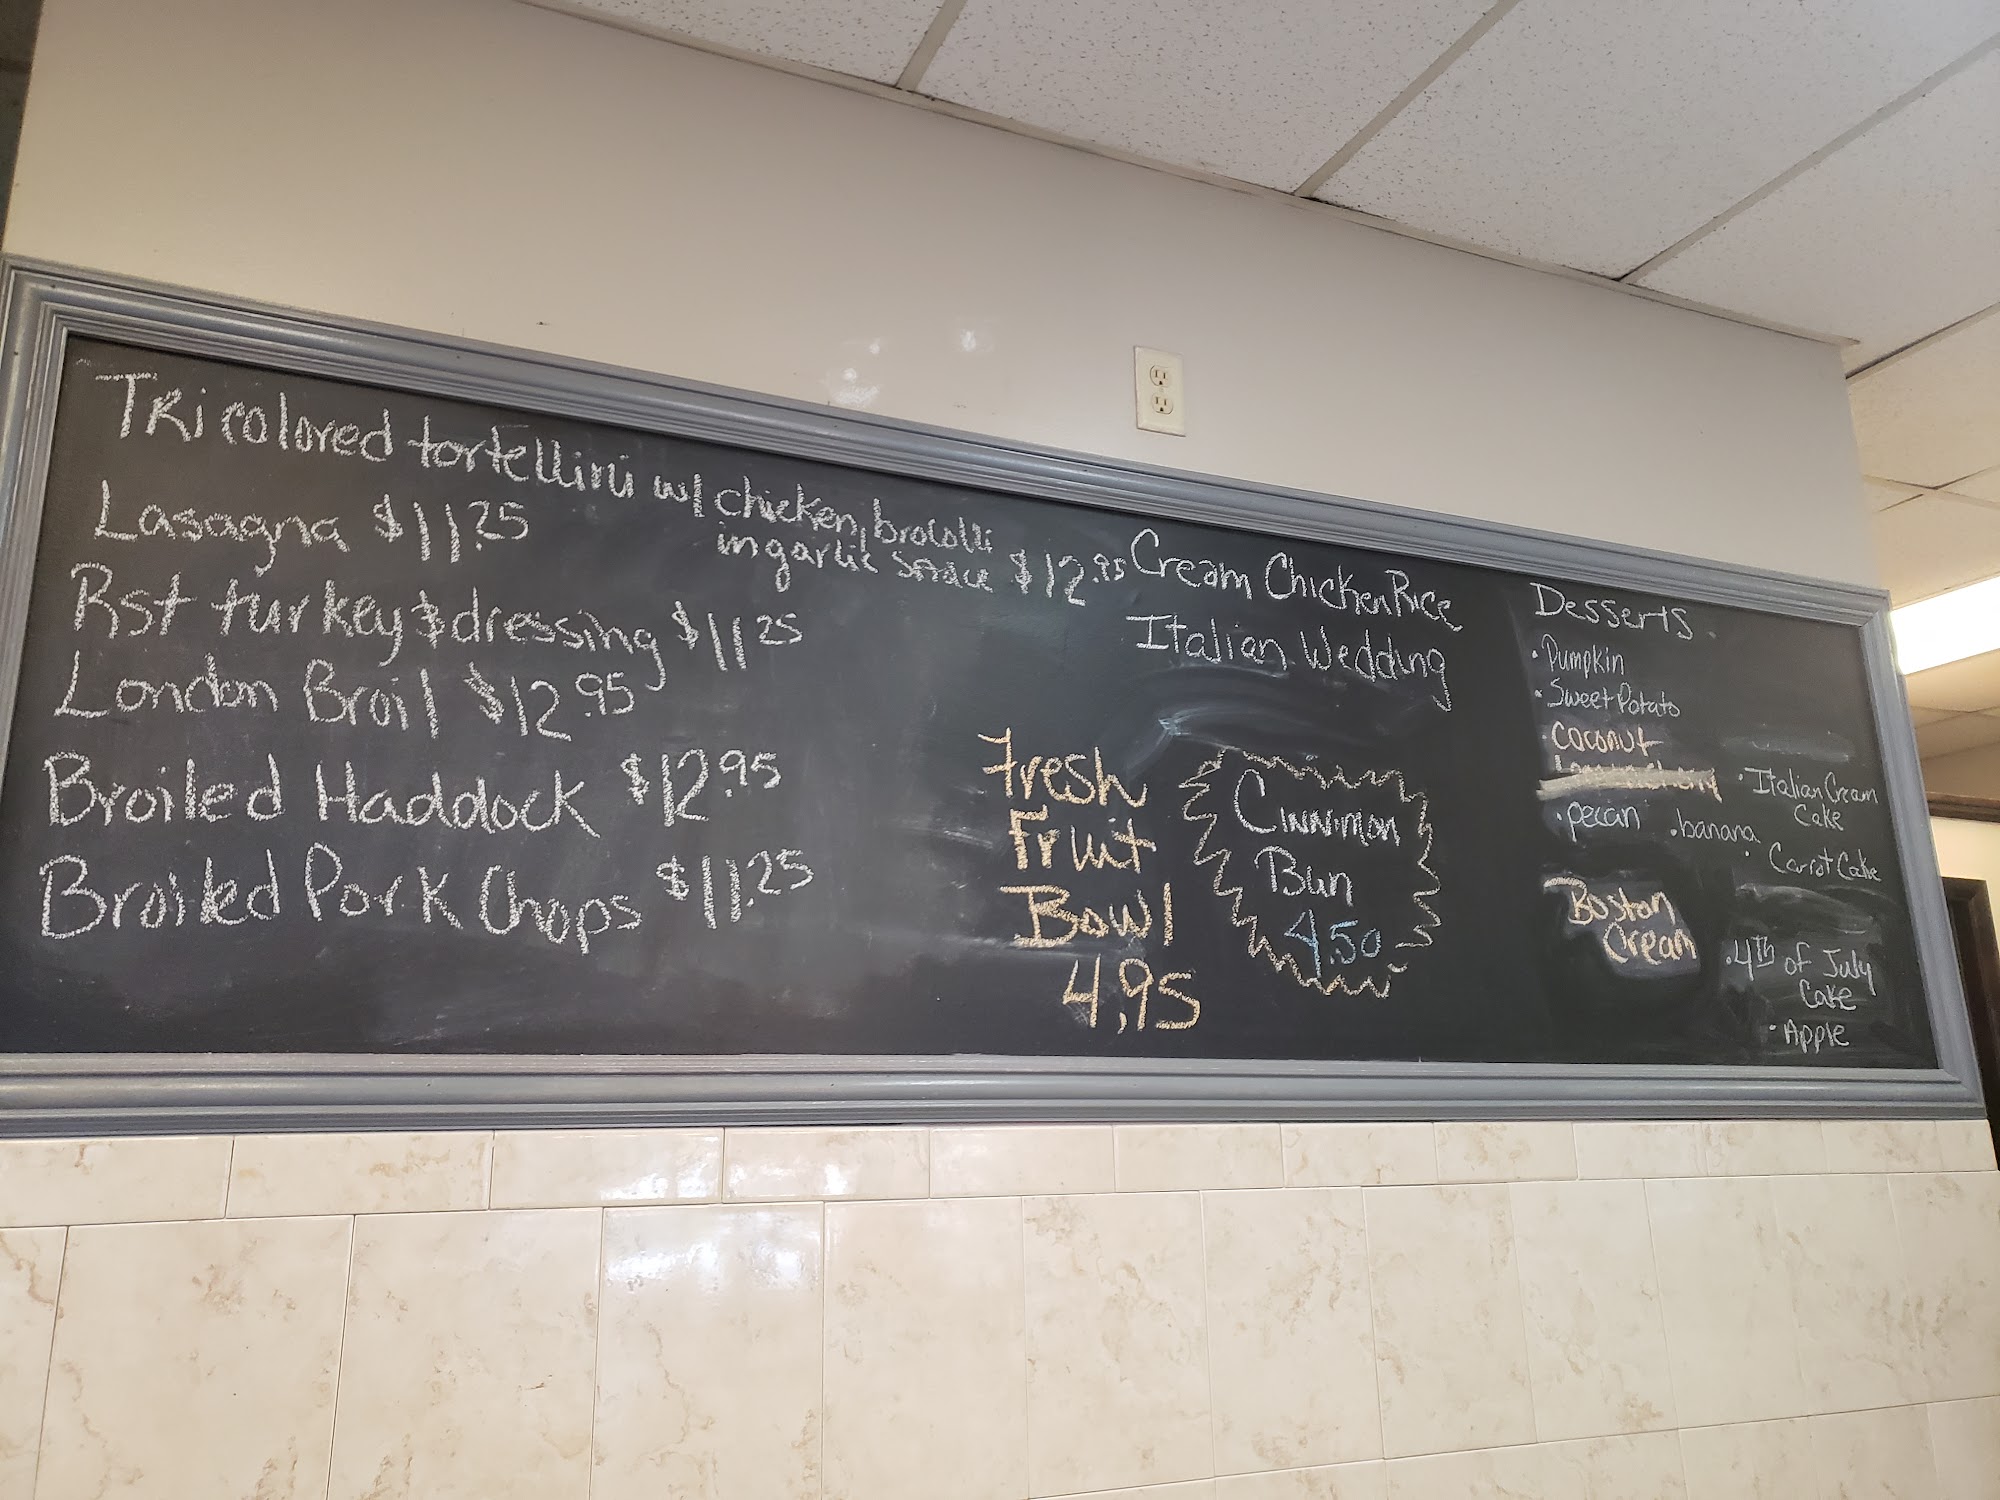 Tricolored tortellini w/ chicken, brocolli
in garlic sauce $12.95
Lasagna $11.25
Rst turkey & dressing $11.25
London Broil $12.95
Broiled Haddock $12.95
Broiled Pork Chops $11.25
Cream Chicken Rice
Italian Wedding
Fresh
Fruit
Bowl
4.95
Cinnimon
Bun
4.50
Desserts
• Pumpkin
• Sweet Potato
• Coconut
• pecan
• banana
Boston
Cream
• Italian Cream
Cake
• Carrot Cake
• 4th of July
Cake
• Apple